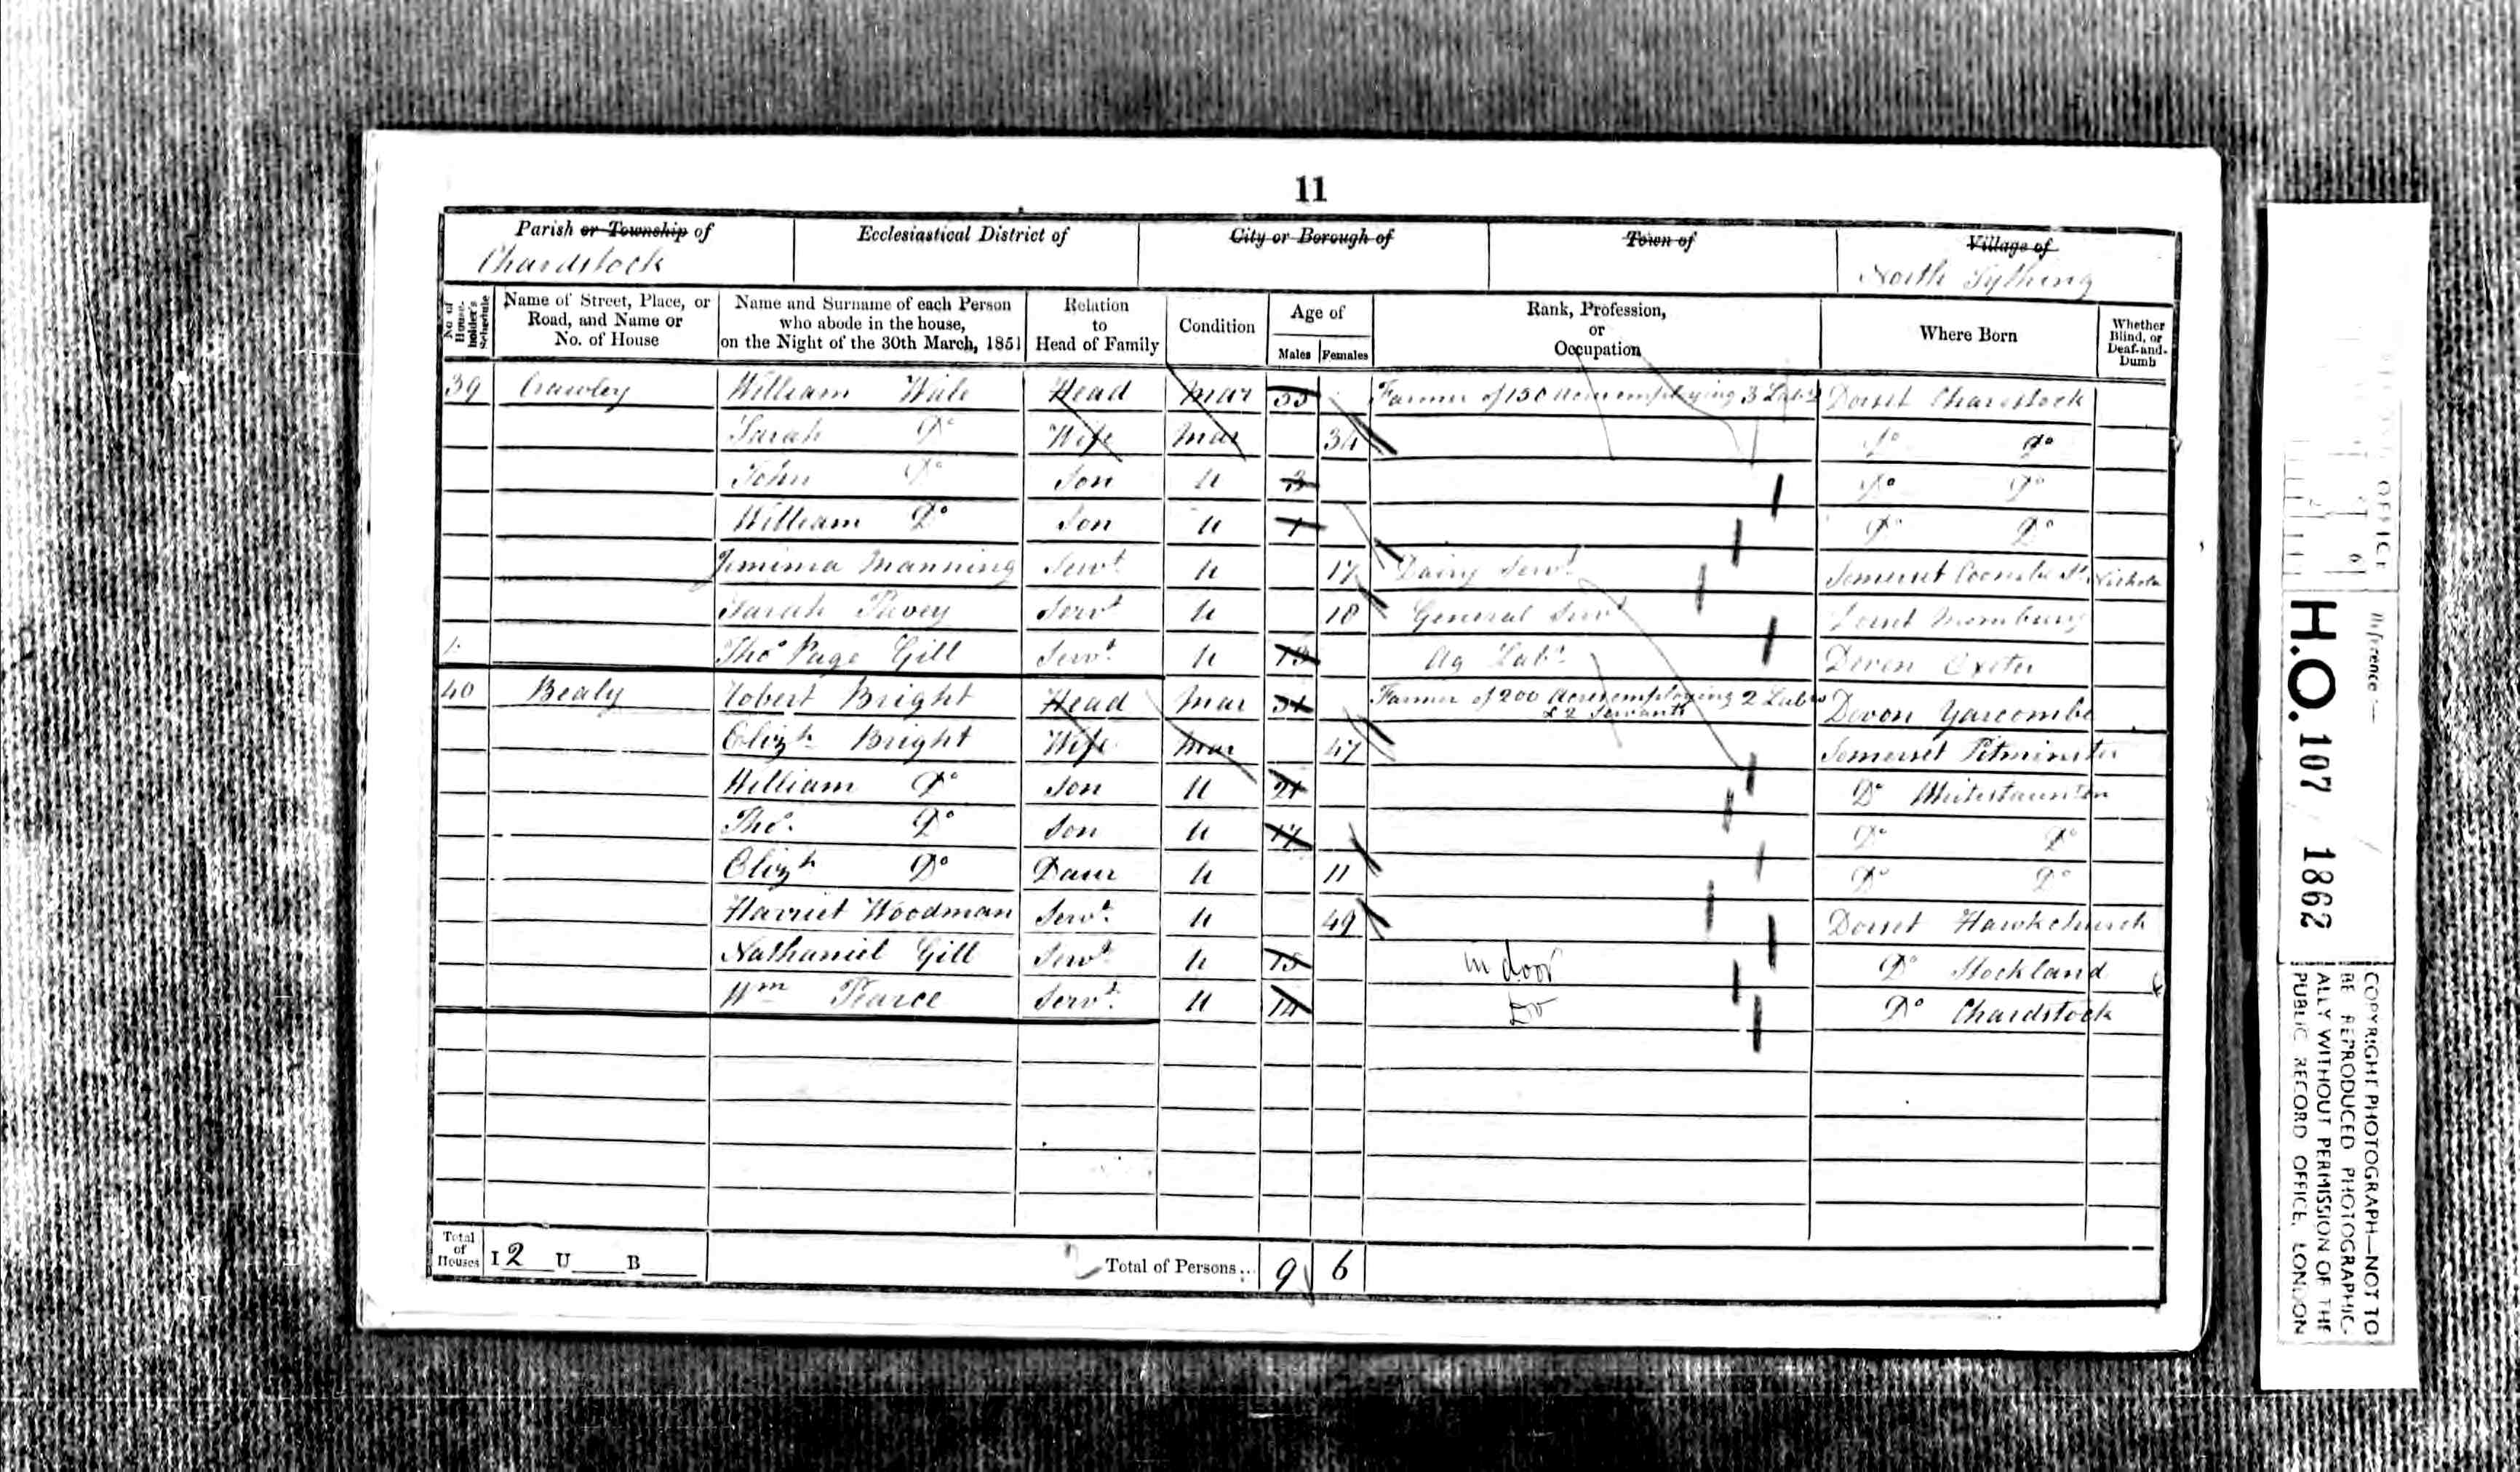 11
Parish or Township of
Chardstock
Ecclesiastical District of
City or Borough of
Town of
Village of
North Tything
No of House-holder's Schedule
Name of Street, Place, or Road, and Name or No. of House
Name and Surname of each Person who abode in the house, on the Night of the 30th March, 1851
Relation to Head of Family
Condition
Age of
Males Females
Rank, Profession, or Occupation
Where Born
Whether Blind, or Deaf-and-Dumb
39 Crawley William Wale Head Mar 35 Farmer of 150 Acres employing 3 Labrs Dorset Chardstock
Sarah Do Wife Mar 34 Do Do
John Do Son U 3 Do Do
William Do Son U 1 Do Do
Jemima Manning Servt U 17 Dairy Servt Somerset Coombe St Nicholas
Sarah Pavey Servt U 18 General Servt Dorset
Thos Page Gill Servt U 13 Ag Labr Devon Exeter
40 Bealy Robert Bright Head Mar 51 Farmer of 200 Acres employing 2 Labrs
& 2 Servants Devon Yarcombe
Elizh Bright Wife Mar 47 Somerset Pitminster
William Do Son U 21 Do Whitestaunton
Thos. Do Son U 17 Do Do
Elizh Do Daur U 11 Do Do
Harriet Woodman Servt. U 49 Dorset Hawkchurch
Nathaniel Gill Servt U 15 in door Do Stockland
Wm Pearce Servt. U 14 Do Do Chardstock
Total of Houses I 2 U B Total of Persons... 9 6
OFFICE
Reference:-
H.O. 107 / 1862
COPYRIGHT PHOTOGRAPH—NOT TO
BE REPRODUCED PHOTOGRAPHIC-
ALLY WITHOUT PERMISSION OF THE
PUBLIC RECORD OFFICE, LONDON